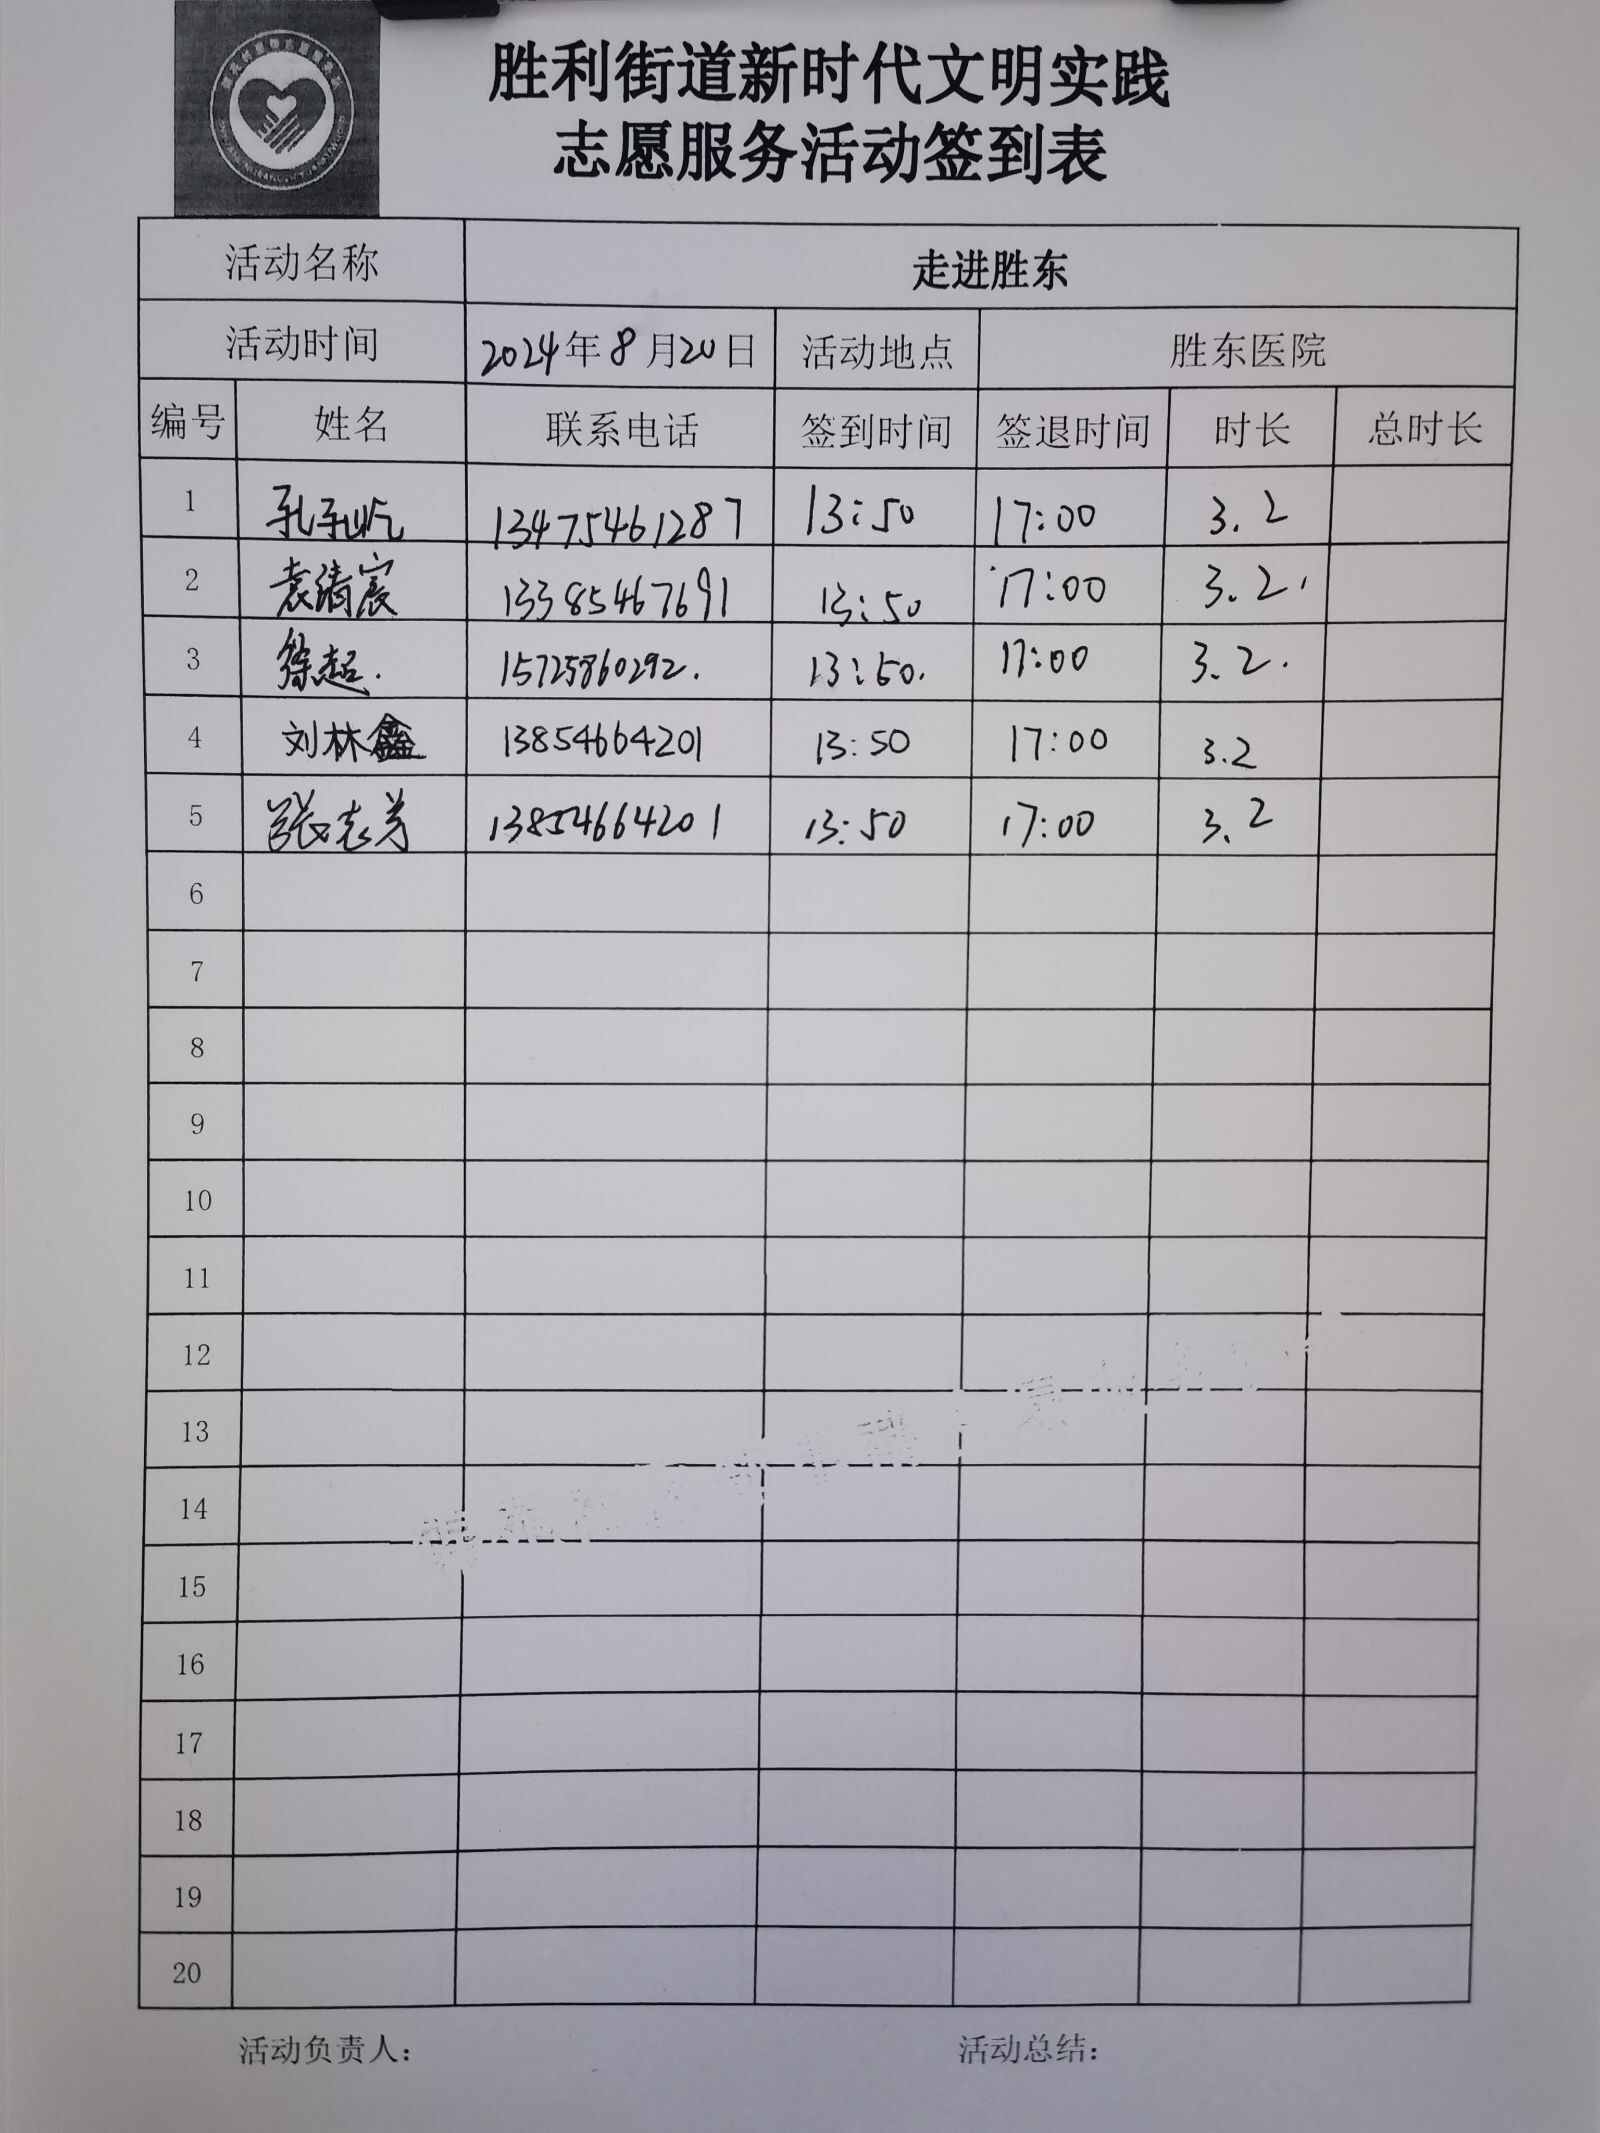 胜利街道新时代文明实践
志愿服务活动签到表
活动名称 走进胜东
活动时间 2024年8月20日 活动地点 胜东医院
编号 姓名 联系电话 签到时间 签退时间 时长 总时长
1 13475461287 13:50 17:00 3.2
2 袁清宸 13385467691 13:50 17:00 3.2.
3 徐超. 15725860292. 13:50. 17:00 3.2.
4 刘林鑫 13854664201 13:50 17:00 3.2
5 张志芳 13854664201 13:50 17:00 3.2
6
7
8
9
10
11
12
13
14
15
16
17
18
19
20
活动负责人: 活动总结: